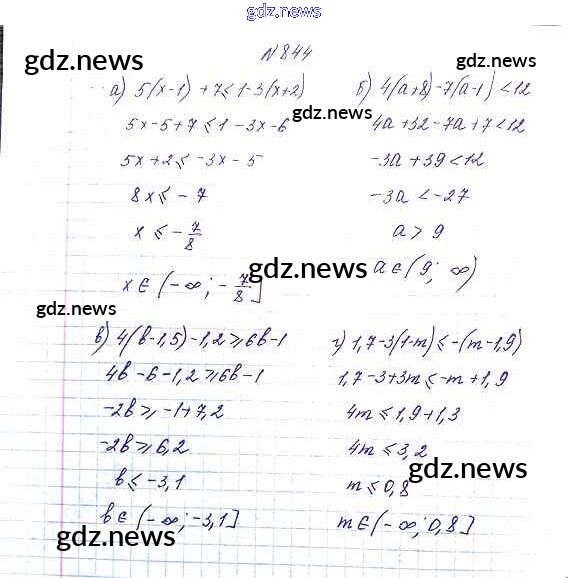 gdz.news
N 844
gdz.news
gdz.news
а) 5(x-1)+7≤1-3(x+2)
5x-5+7≤1-3x-6
5x+2≤-3x-5
8x≤-7
x≤-7/8
x∈(-∞;-7/8]
б) 4(a+8)-7(a-1)<12
4a+32-7a+7<12
-3a+39<12
-3a<-27
a>9
a∈(9;∞)
gdz.news
gdz.news
в) 4(b-1,5)-1,2≥6b-1
4b-6-1,2≥6b-1
-2b≥-1+7,2
-2b≥6,2
b≤-3,1
b∈(-∞;-3,1]
г) 1,7-3(1-m)≤-(m-1,9)
1,7-3+3m≤-m+1,9
4m≤1,9+1,3
4m≤3,2
m≤0,8
m∈(-∞;0,8]
gdz.news
gdz.news